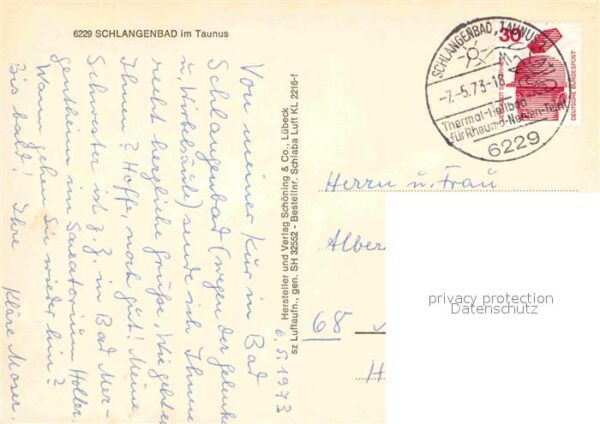 6229 SCHLANGENBAD im Taunus
Von meiner Kur in Bad
Schlangenbad (wegen der Gelenke
u. Wirbelsäule) sende ich Ihnen
recht herzliche Grüße. Wie geht es
Ihnen? Hoffe, noch gut! Meine
Schwester ist z. Z. in Bad Mer-
gentheim im Sanatorium Holler.
Wann gehen Sie wieder hin?
Bis bald! Ihre
Kläre Moser.
6. 5. 1973
Hersteller und Verlag Schöning & Co., Lübeck
sz Luftaufn., gen. SH 32552 - Bestellnr. Schlaba Luft KL 2216-f
SCHLANGENBAD, TAUNUS
-7.-5.73-18
Thermal-Heilbad
für Rheuma-Nerven-Teint
6229
30
DEUTSCHE BUNDESPOST
Herrn u. Frau
Alber
68
H
privacy protection
Datenschutz